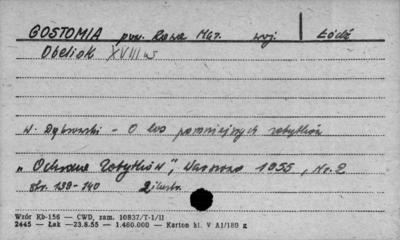 GOSTOMIA pow. Rawa Maz. woj. Łódź
Obelisk XVIII w
W. Dąbrowski - O los pomniejszych zabytków
"Ochrona Zabytków", Warszawa 1955, Nr. 2
str. 139-140 2 ilustr.
Wzór Kb-156 — CWD, zam. 10837/T-1/II
2445 — Łak — 23.8.55 — 1.460.000 — Karton kl. V A1/180 g